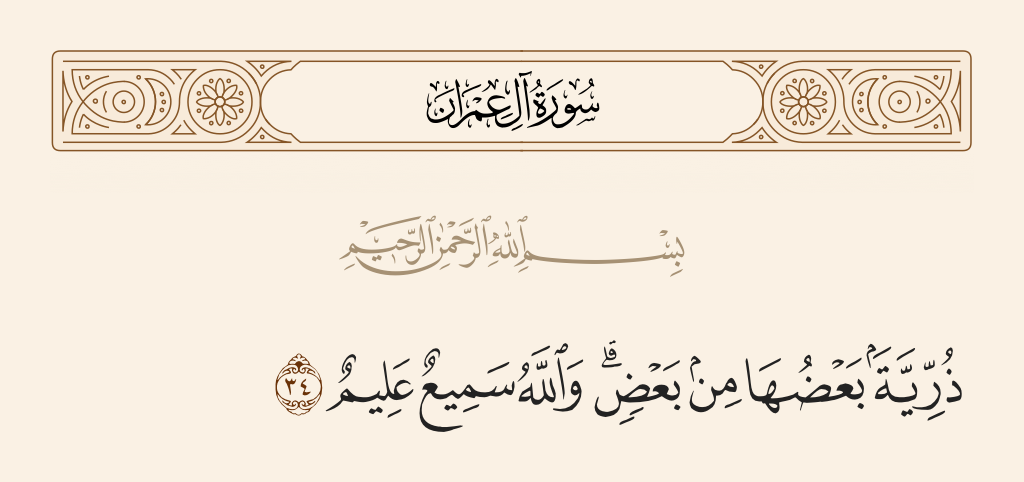 سُورَةُ آلِ عِمْرَانَ
بِسْمِ ٱللَّهِ ٱلرَّحْمَٰنِ ٱلرَّحِيمِ
ذُرِّيَّةَۢ بَعْضُهَا مِنۢ بَعْضٍۗ وَٱللَّهُ سَمِيعٌ عَلِيمٌ ٣٤